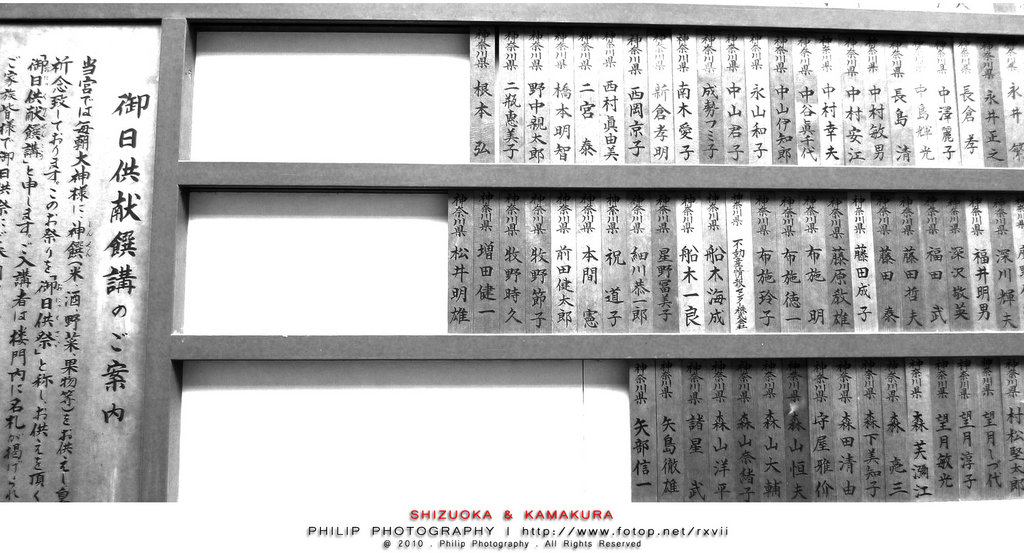 御日供献饌講のご案内
当宮では毎朝大神様に神饌(米、酒、野菜、果物等)をお供えし皇
祈念致しております。このお祭りを「御日供祭」と称し、お供えを頂く
「御日供献饌講」と申します。ご入講者は楼門内に名札が掲げられ
神奈川県 永井
神奈川県 永井正之
神奈川県 長倉孝
神奈川県 中澤篤子
神奈川県 中島輝光
神奈川県 長島清
神奈川県 中村敏男
神奈川県 中村安江
神奈川県 中村幸夫
神奈川県 中谷眞千代
神奈川県 中山伊知郎
神奈川県 永山和子
神奈川県 中山君子
神奈川県 成勢フミ子
神奈川県 南木愛子
神奈川県 新倉孝明
神奈川県 西岡京子
神奈川県 西村眞由美
神奈川県 二宮泰
神奈川県 橋本明智
神奈川県 野中親太郎
神奈川県 二瓶恵美子
神奈川県 根本弘
神奈川県 深川輝夫
神奈川県 福井明男
神奈川県 深沢敬英
神奈川県 福田武
神奈川県 藤田哲夫
神奈川県 藤田泰
神奈川県 藤田成子
神奈川県 藤原敎雄
神奈川県 布施明
神奈川県 布施徳一
神奈川県 布施玲子
神奈川県
神奈川県 船木海成
神奈川県 船木一良
神奈川県 星野冨美子
神奈川県 細川恭一郎
神奈川県 祝道子
神奈川県 本間憲
神奈川県 前田健太郎
神奈川県 牧野節子
神奈川県 牧野時久
神奈川県 増田健一
神奈川県 松井明雄
神奈川県 村松堅太郎
神奈川県 望月しづ代
神奈川県 望月淳子
神奈川県 望月敏光
神奈川県 森芙瀰江
神奈川県 森 三
神奈川県 森下美知子
神奈川県 森田清由
神奈川県 守屋雅价
神奈川県 森山恒夫
神奈川県 森山大輔
神奈川県 森山奈緒子
神奈川県 森山洋平
神奈川県 諸星武
神奈川県 矢島徹雄
神奈川県 矢部信一
SHIZUOKA & KAMAKURA
PHILIP PHOTOGRAPHY | http://www.fotop.net/rxvii
@ 2010 . Philip Photography . All Rights Reserved